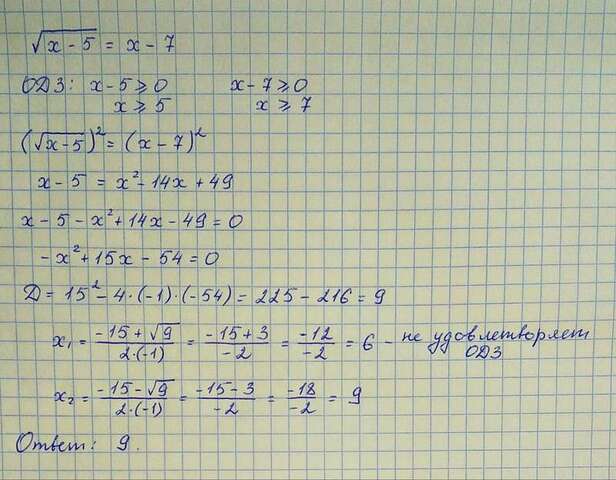 √(x - 5) = x - 7
ОДЗ: x - 5 ⩾ 0 x - 7 ⩾ 0
x ⩾ 5 x ⩾ 7
(√(x - 5))² = (x - 7)²
x - 5 = x² - 14x + 49
x - 5 - x² + 14x - 49 = 0
- x² + 15x - 54 = 0
Д = 15² - 4 · (-1) · (-54) = 225 - 216 = 9
x₁ = (-15 + √9)/(2·(-1)) = (-15 + 3)/(-2) = (-12)/(-2) = 6 - не удовлетворяет
ОДЗ
x₂ = (-15 - √9)/(2·(-1)) = (-15 - 3)/(-2) = (-18)/(-2) = 9
Ответ: 9.